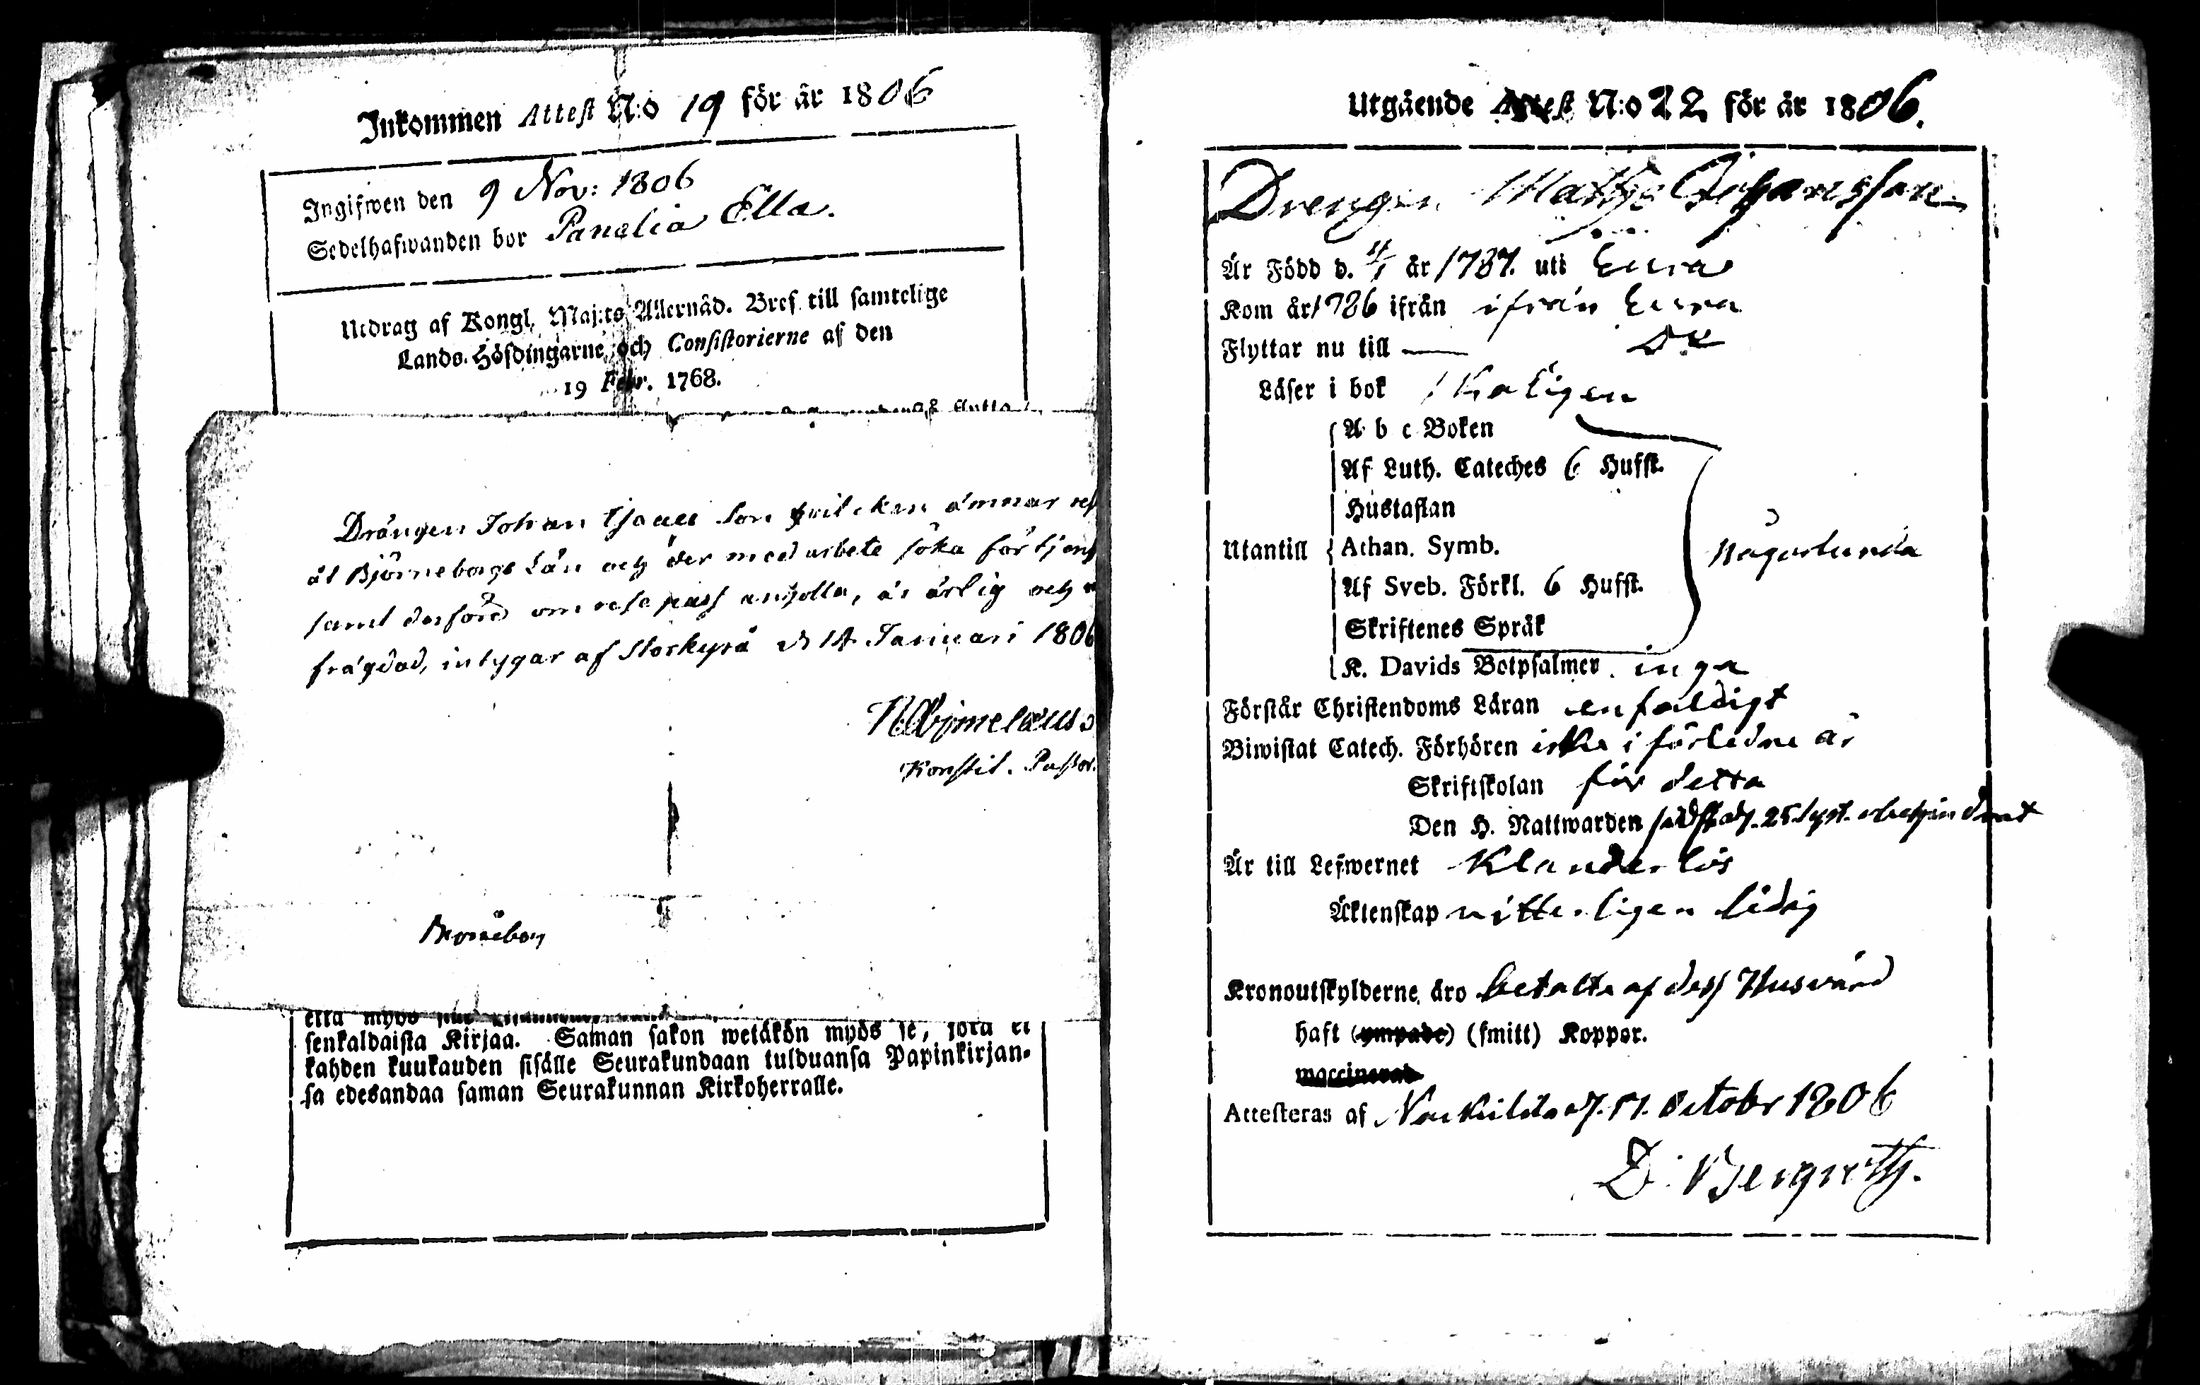 Inkommen Attest N:o 19 för år 1806
Ingifwen den 9 Nov: 1806
Sedelhafwanden bor Panelia Ella.
Utdrag af Kongl. Maj:ts Allernåd. Bref till samtelige
Lands-Höfdingarne och Consistorierne af den
19 Febr. 1768.
Drängen Johan Isacs son hvilcken ämnar
åt Björneborgs Län och der med arbete söka förtjens
samt derföre om rese pass anholla, är ärlig och
frägdad, intygar af Storkyrå d 14 Januari 1806
Konstit. Pastor.
etta myös
senkaldaista Kirjaa. Saman sakon wetäkön myös se, jora ei
kahden kuukauden sisälle Seurakundaan tulduansa Papinkirjan-
sa edesandaa saman Seurakunnan Kirkoherralle.
Utgående Attest N:o 22 för år 1806.
Drengen Matts Johansson
Är Född d. 4/1 år 1787. uti Eura
Kom år 1786 ifrån ifrån Eura
Flyttar nu till — Do
Läser i bok skaligen
A b c Boken
Af Luth. Cateches 6 Hufst.
Hustaflan
Utantill Athan. Symb. någorlunda
Af Sveb. Förkl. 6 Hufst.
Skriftenes Språk
K. Davids Botpsalmer inga
Förstår Christendoms Läran enfaldigt
Biwistat Catech. Förhören icke i förledne år
Skriftskolan för detta
Den H. Nattwarden sidst d. 25
Är till Lefwernet Klanderlös
Äktenskap witterligen ledig
Kronoutskylderne äro betalta af dess Husvärd
haft (ympade) (smitt) Koppor.
waccinerad
Attesteras af d. 11. Octobr 1806
D. Bergroth.